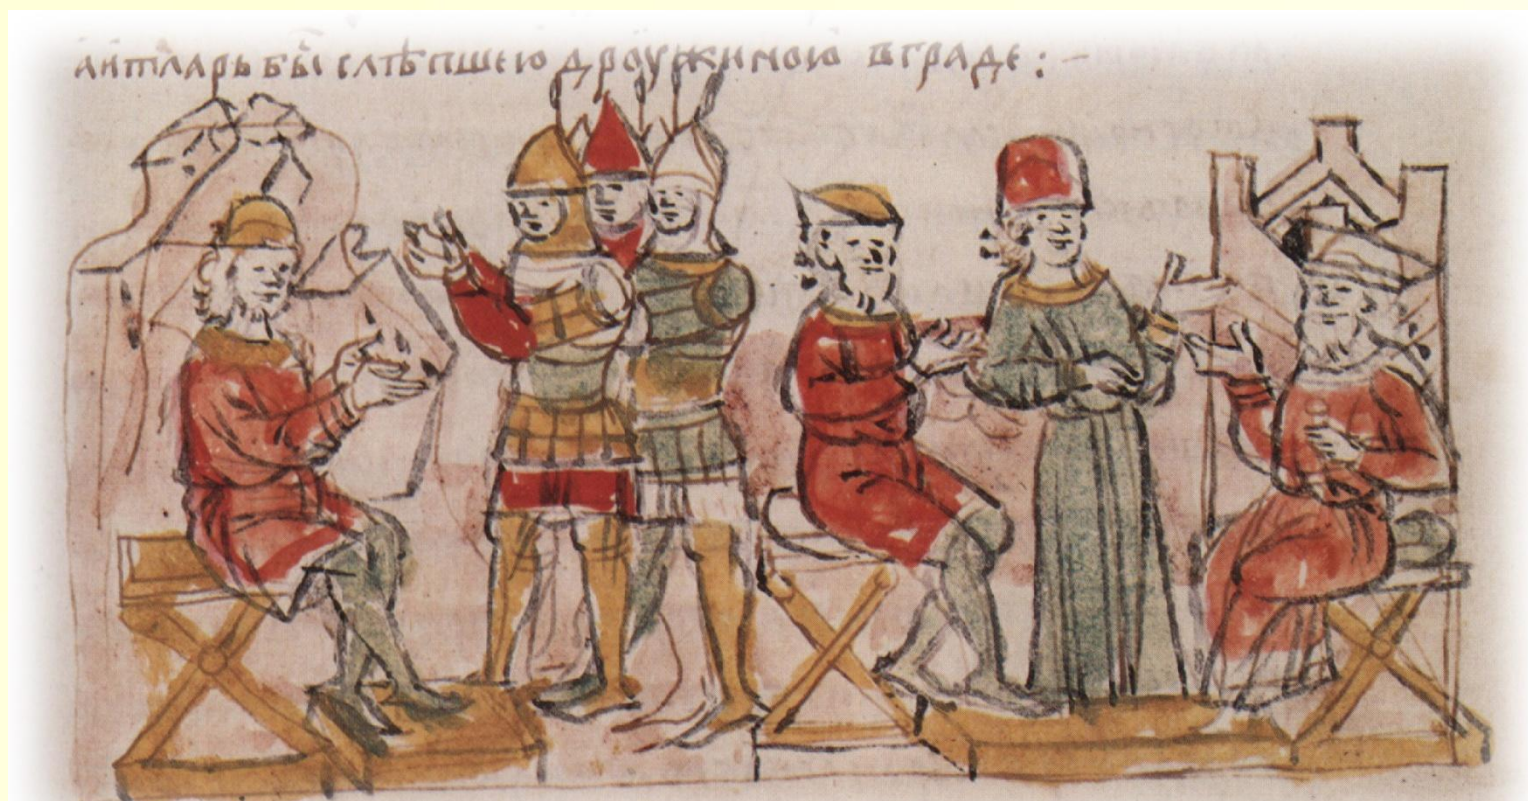 аитларь бы слѣпшею дроужиною вграде : –